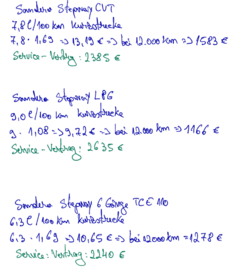 Sandero Stepway CVT
7,8 l/100 km Kurzstrecke
7,8 · 1,69 => 13,19 € => bei 12.000 km => 1583 €
Service-Vertrag: 2385 €
Sandero Stepway LPG
9,0 l/100 km Kurzstrecke
9 · 1,08 => 9,72 € => bei 12.000 km => 1166 €
Service-Vertrag: 2635 €
Sandero Stepway 6 Gänge TCE 110
6,3 l/100 km Kurzstrecke
6,3 · 1,69 => 10,65 € => bei 12.000 km = 1278 €
Service-Vertrag: 2240 €